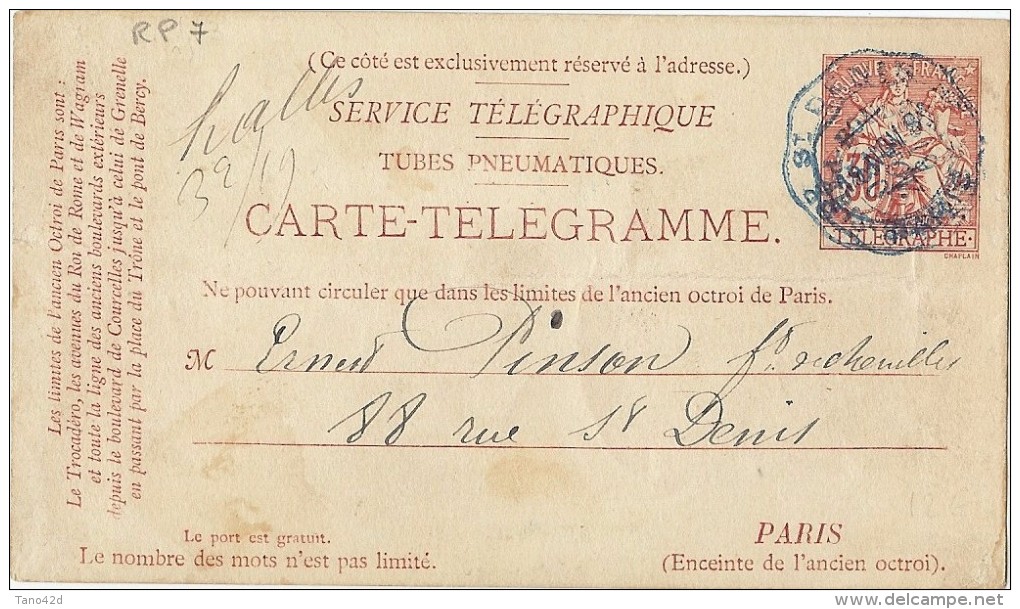 RP7
(Ce côté est exclusivement réservé à l'adresse.)
SERVICE TÉLÉGRAPHIQUE
TUBES PNEUMATIQUES.
CARTE-TÉLÉGRAMME.
Ne pouvant circuler que dans les limites de l'ancien octroi de Paris.
M Ernest Pinson
88 rue St Denis
PARIS
(Enceinte de l'ancien octroi).
Le port est gratuit.
Le nombre des mots n'est pas limité.
Les limites de l'ancien Octroi de Paris sont :
Le Trocadéro, les avenues du Roi de Rome et de Wagram
et toute la ligne des anciens boulevards extérieurs
depuis le boulevard de Courcelles jusqu'à celui de Grenelle
en passant par la place du Trône et le pont de Bercy.
30
TÉLÉGRAPHE
CHAPLAIN
Tano42d
www.delcampe.net